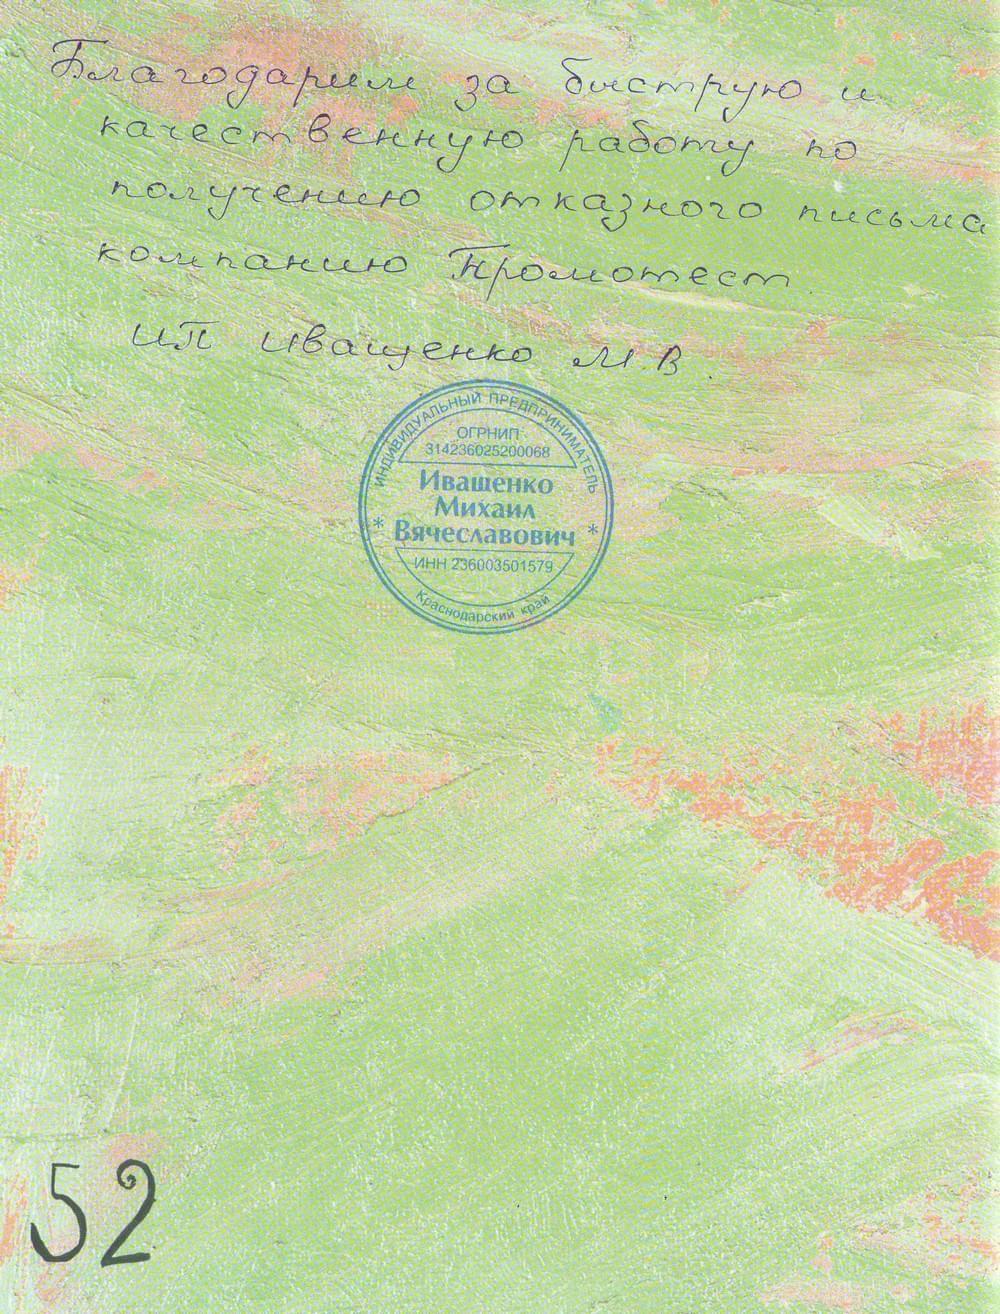 Благодарим за быструю и
качественную работу по
получению отказного письма
компанию Промотест.
ИП Иващенко М.В.
ИНДИВИДУАЛЬНЫЙ ПРЕДПРИНИМАТЕЛЬ
ОГРНИП
314236025200068
Иващенко
Михаил
Вячеславович
* *
ИНН 236003501579
Краснодарский край
52